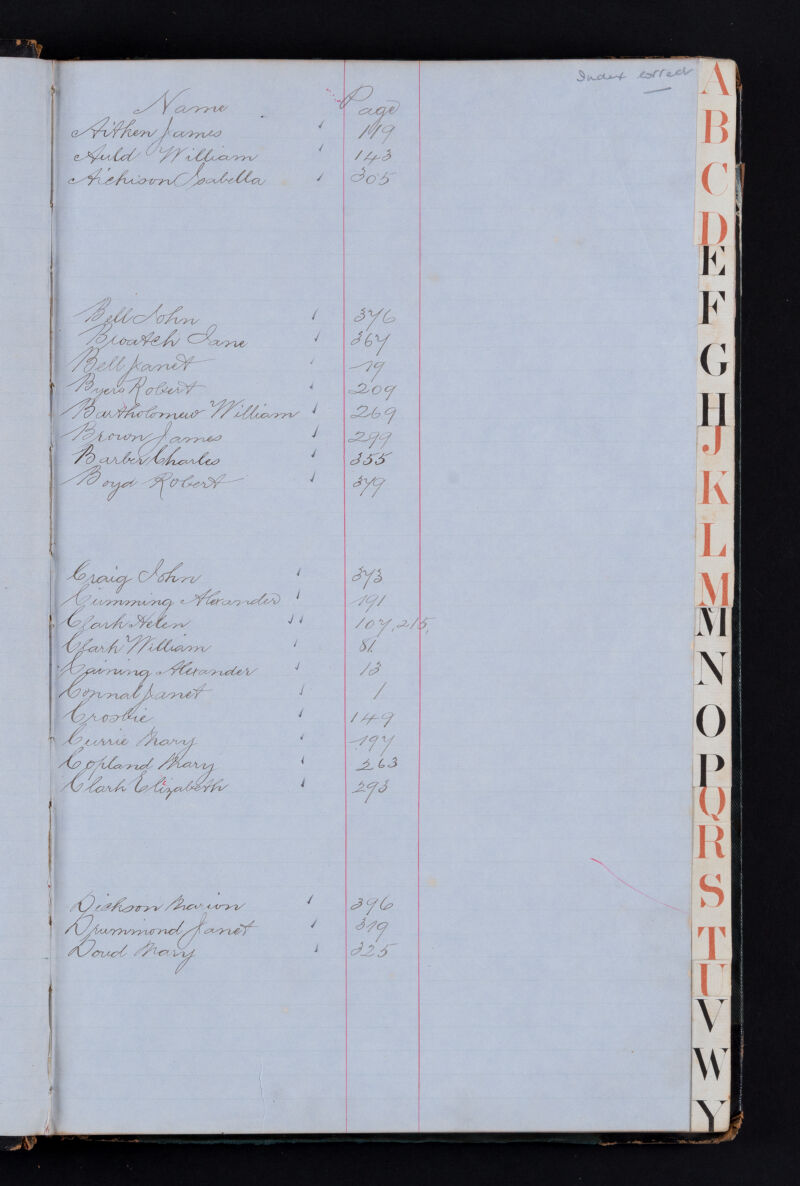 Index
Name Page
Aitken James 119
Auld William 143
Aichison Isabella 305
Bell John 376
Broatch Jane 367
Bell Janet 19
Byers Robert 209
Bartholomew William 269
Brown James 299
Barber Charles 355
Boyd Robert 379
Craig John 373
Cumming Alexander 191
Clark Helen 107, 215,
Clark William 81
Caining Alexander 13
Connal Janet 1
Crosbie 149
Currie Mary 197
Copland Mary 263
Clark Elizabeth 293
Dickson Marion 396
Drummond Janet 319
Doud Mary 325
A
B
C
D
E
F
G
H
J
K
L
M
M
N
O
P
Q
R
S
T
U
V
W
Y